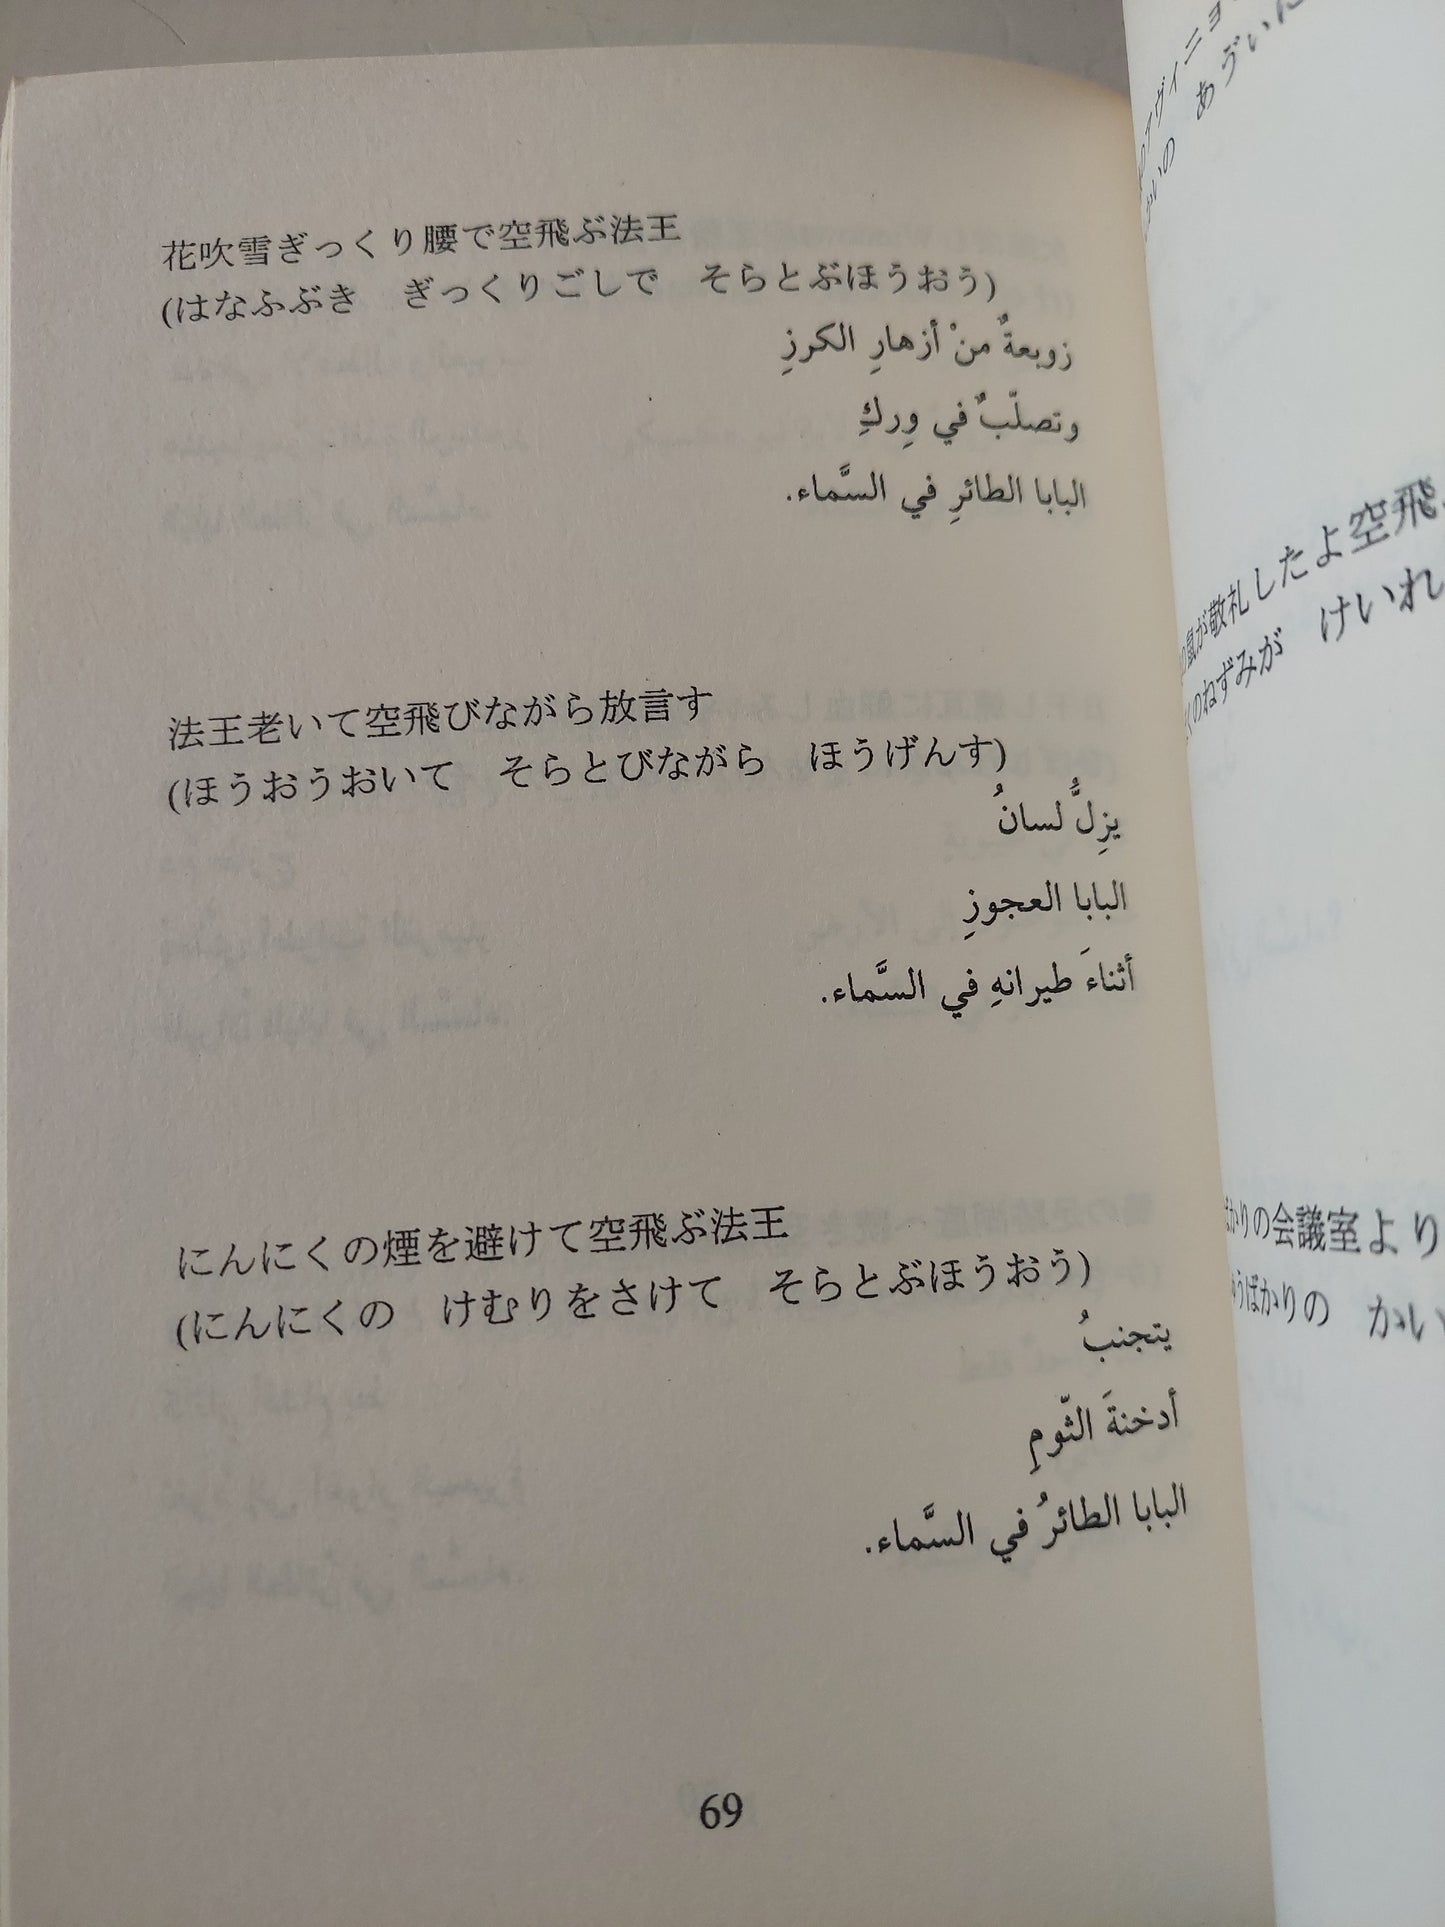 花吹雪ぎっくり腰で空飛ぶ法王
(はなふぶき　ぎっくりごしで　そらとぶほうおう)
زوبعةٌ منْ أزهارِ الكرزِ
وتصلّبٌ في وِركِ
البابا الطائرِ في السَّماء.
法王老いて空飛びながら放言す
(ほうおうおいて　そらとびながら　ほうげんす)
يزِلُّ لسانُ
البابا العجوزِ
أثناءَ طيرانهِ في السَّماء.
にんにくの煙を避けて空飛ぶ法王
(にんにくの　けむりをさけて　そらとぶほうおう)
يتجنبُ
أدخنةَ الثّومِ
البابا الطائرُ في السَّماء.
69
アヴィニョ
の　あゔぃに
鼠が敬礼したよ空飛
のねずみが　けいれ
かりの会議室より
うばかりの　かい